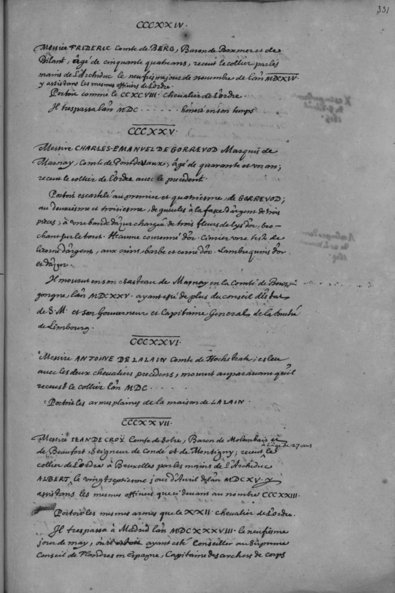 331
CCCXXIV
Messire FRIDERIC Comte de BERG, Baron de Boxmer et de
Bilant, âgé de cinquante quatre ans, receut le collier par les
mains de l'Archiduc le neufiesme jour de novembre de l'an MDXXIV
y assistans les mesmes officiers de l'ordre.
Portoit comme le CCXCVIII chevalier de l'ordre.
Il trespassa l'an MDC
en son temps
CCCXXV
Messire CHARLES-EMANUEL DE GORREVOD Marquis de
Marnay, Comte de Pontdevaux, âgé de quarante et un an;
receut le collier de l'ordre avec le precedent.
Portoit escartelé au premier et quatriesme, de GORREVOD;
au deuxiesme et troisiesme, de gueules à la face d'argent de trois
pieces, à une bande d'azur chargée de trois fleurs de lys d'or, bro-
chant sur le tout. Heaume couronné d'or. Cimier une teste de
licorne d'argent, aux crins, barbe et corne d'or. Lambrequins d'or
et d'azur.
Il mourut en son chasteau de Marnay en la Comté de Bour-
gongne l'an MDCXXV ayant esté de plus du conseil d'estat
de S.M. et son Gouverneur et Capitaine General de la duché
de Limbourg.
CCCXXVI
Messire ANTOINE DE LALAIN Comte de Hochstrate; esleu
avec les deux chevaliers precedens, mourut auparavant qu'il
receust le collier l'an MDC
Portoit les armes plaines de la maison de LALAIN.
CCCXXVII
Messire JEAN DE CROY Comte de Solre, Baron de Molenbais et
de Beaufort, Seigneur de Condé et de Montigny; receut le
âgé de 27 ans
collier de l'ordre à Bruxelles par les mains de l'Archiduc
ALBERT, le vingt septiesme jour d'Avril de l'an MDCXV
assistans les mesmes officiers que cy devant au nombre CCCXXIII.
Portoit les mesmes armes que le XXII chevalier de l'ordre.
Il trespassa à Madrid l'an MDCXXXVIII le neufiesme
jour de may, ayant esté Conseiller au Supreme
Conseil de Flandres en Espagne, Capitaine des archers de corps